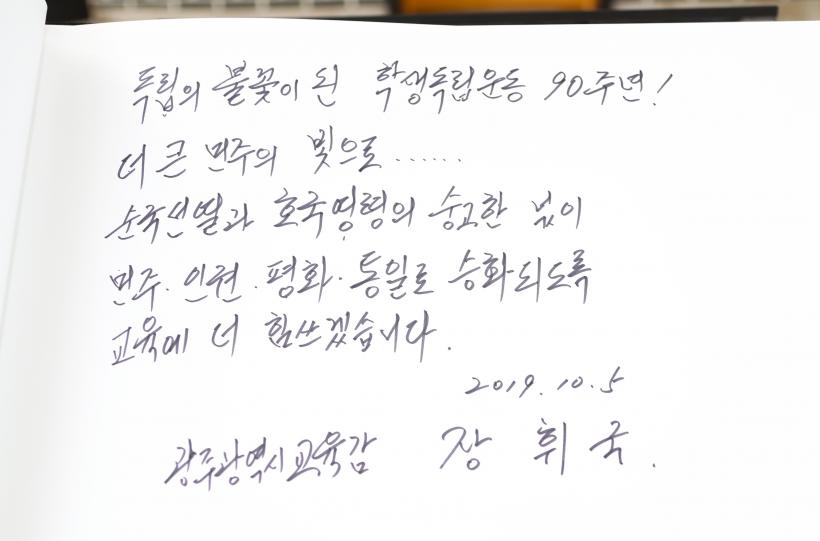 독립의 불꽃이 된 학생독립운동 90주년!
더 큰 민주의 빛으로 ......
순국선열과 호국영령의 숭고한 넋이
민주·인권·평화·통일로 승화되도록
교육에 더 힘쓰겠습니다.
2019. 10. 5
광주광역시교육감 장 휘 국.